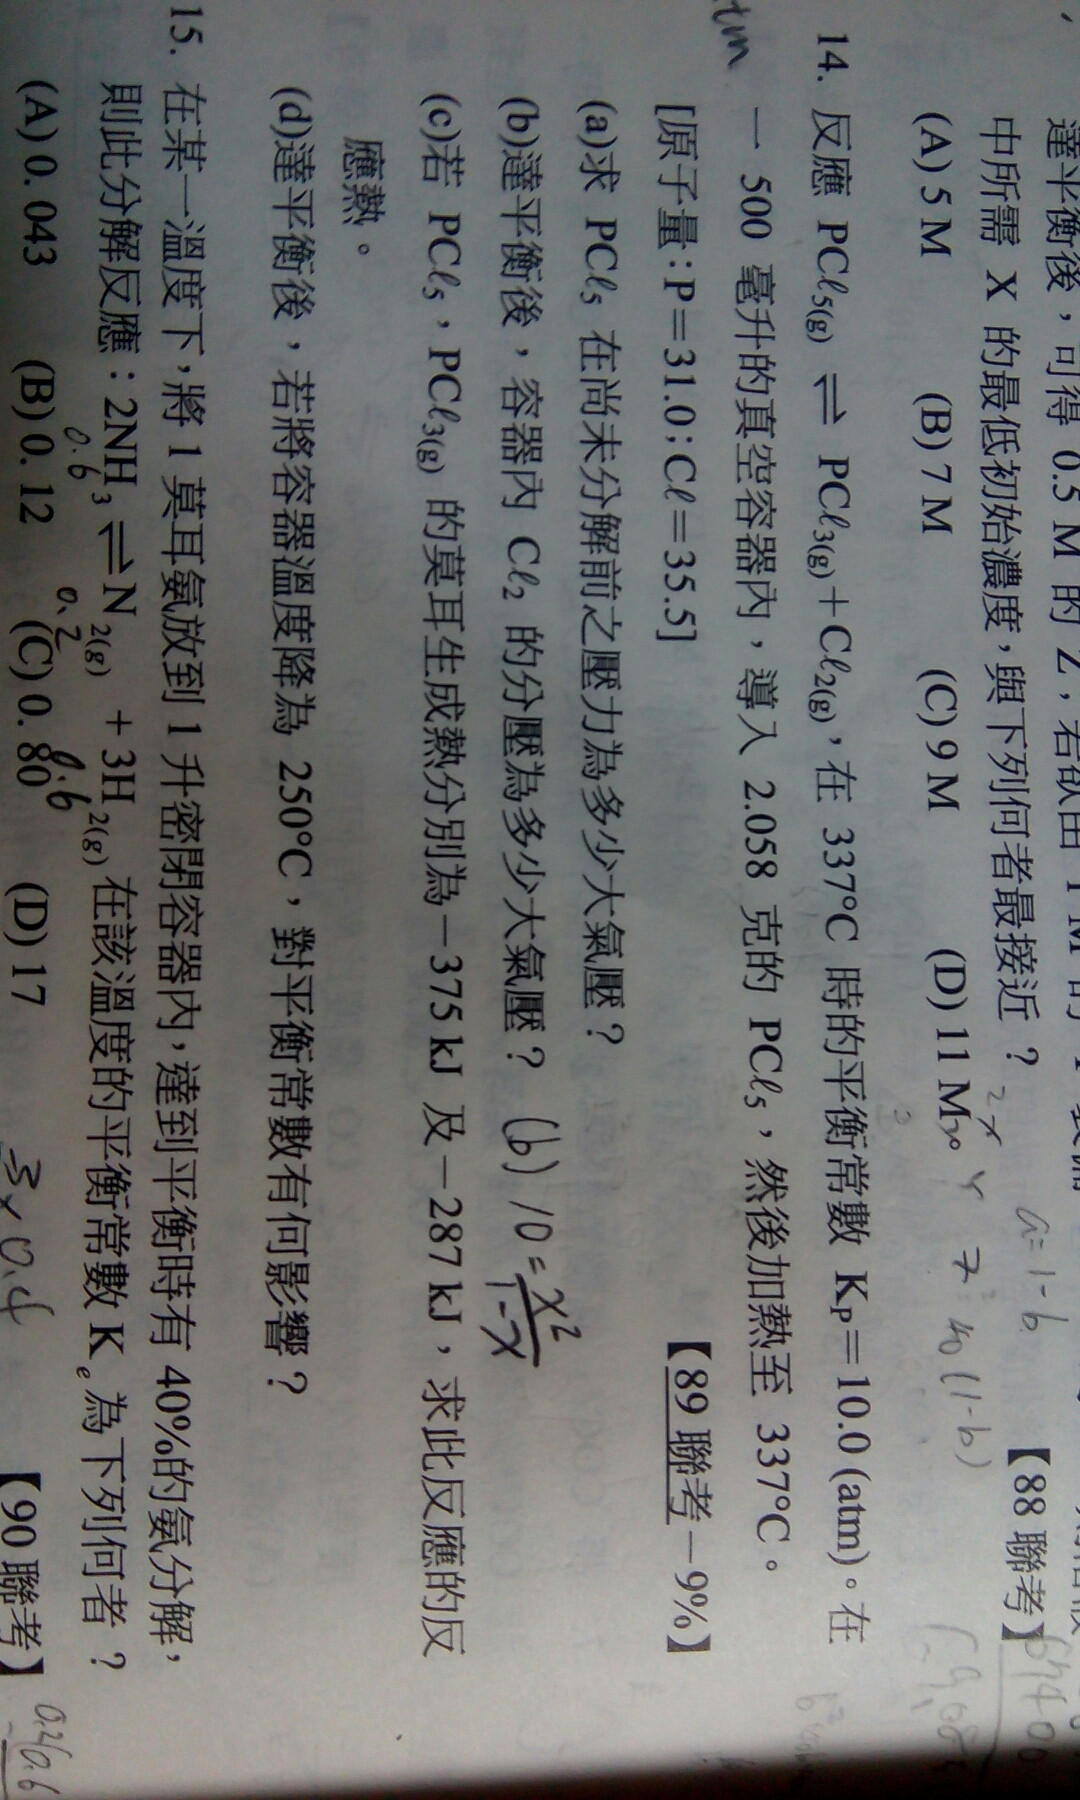 達平衡後，可得 0.5 M 的 Z，若欲由 1 M 的 Y
中所需 X 的最低初始濃度，與下列何者最接近？ 【88 聯考】
(A) 5 M (B) 7 M (C) 9 M (D) 11 M。
2x a=1-b
14. 反應 PCℓ5(g) ⇌ PCℓ3(g)+Cℓ2(g)，在 337°C 時的平衡常數 KP=10.0 (atm)。在
一 500 毫升的真空容器內，導入 2.058 克的 PCℓ5，然後加熱至 337°C。
atm
[原子量：P=31.0；Cℓ=35.5] 【89 聯考－9%】
(a)求 PCℓ5 在尚未分解前之壓力為多少大氣壓？
(b)達平衡後，容器內 Cℓ2 的分壓為多少大氣壓？ (b) 10=x²/1-x
(c)若 PCℓ5，PCℓ3(g) 的莫耳生成熱分別為－375 kJ 及－287 kJ，求此反應的反
應熱。
(d)達平衡後，若將容器溫度降為 250°C，對平衡常數有何影響？
15. 在某一溫度下，將 1 莫耳氨放到 1 升密閉容器內，達到平衡時有 40%的氨分解，
則此分解反應：2NH3 ⇌ N2(g) + 3H2(g) 在該溫度的平衡常數 Kc 為下列何者？
0.6 0.2 0.6
(A) 0.043 (B) 0.12 (C) 0.80 (D) 17 【90 聯考】
3×0.4